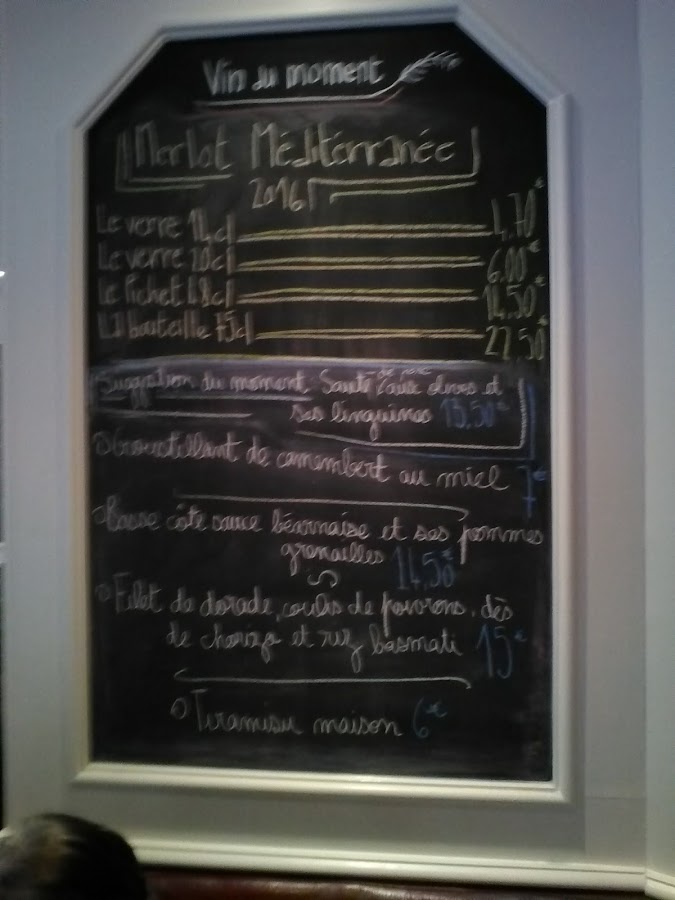 Vin du moment
Merlot Méditerranée
2016
Le verre 14cl 4,70€
Le verre 20cl 6.00€
Le Pichet 48cl 14,50€
La bouteille 75cl 22,50€
Suggestion du moment Sauté de porc aux olives et
ses linguines 13,50€
Croustillant de camembert au miel 7€
Basse côte sauce béarnaise et ses pommes
grenailles 14,50€
Filet de dorade, coulis de poivrons, dès
de chorizo et riz basmati 15€
Tiramisu maison 6€